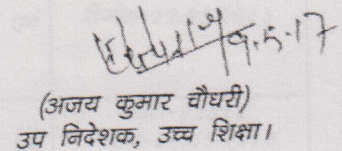 9.5.17
(अजय कुमार चौधरी)
उप निदेशक, उच्च शिक्षा।